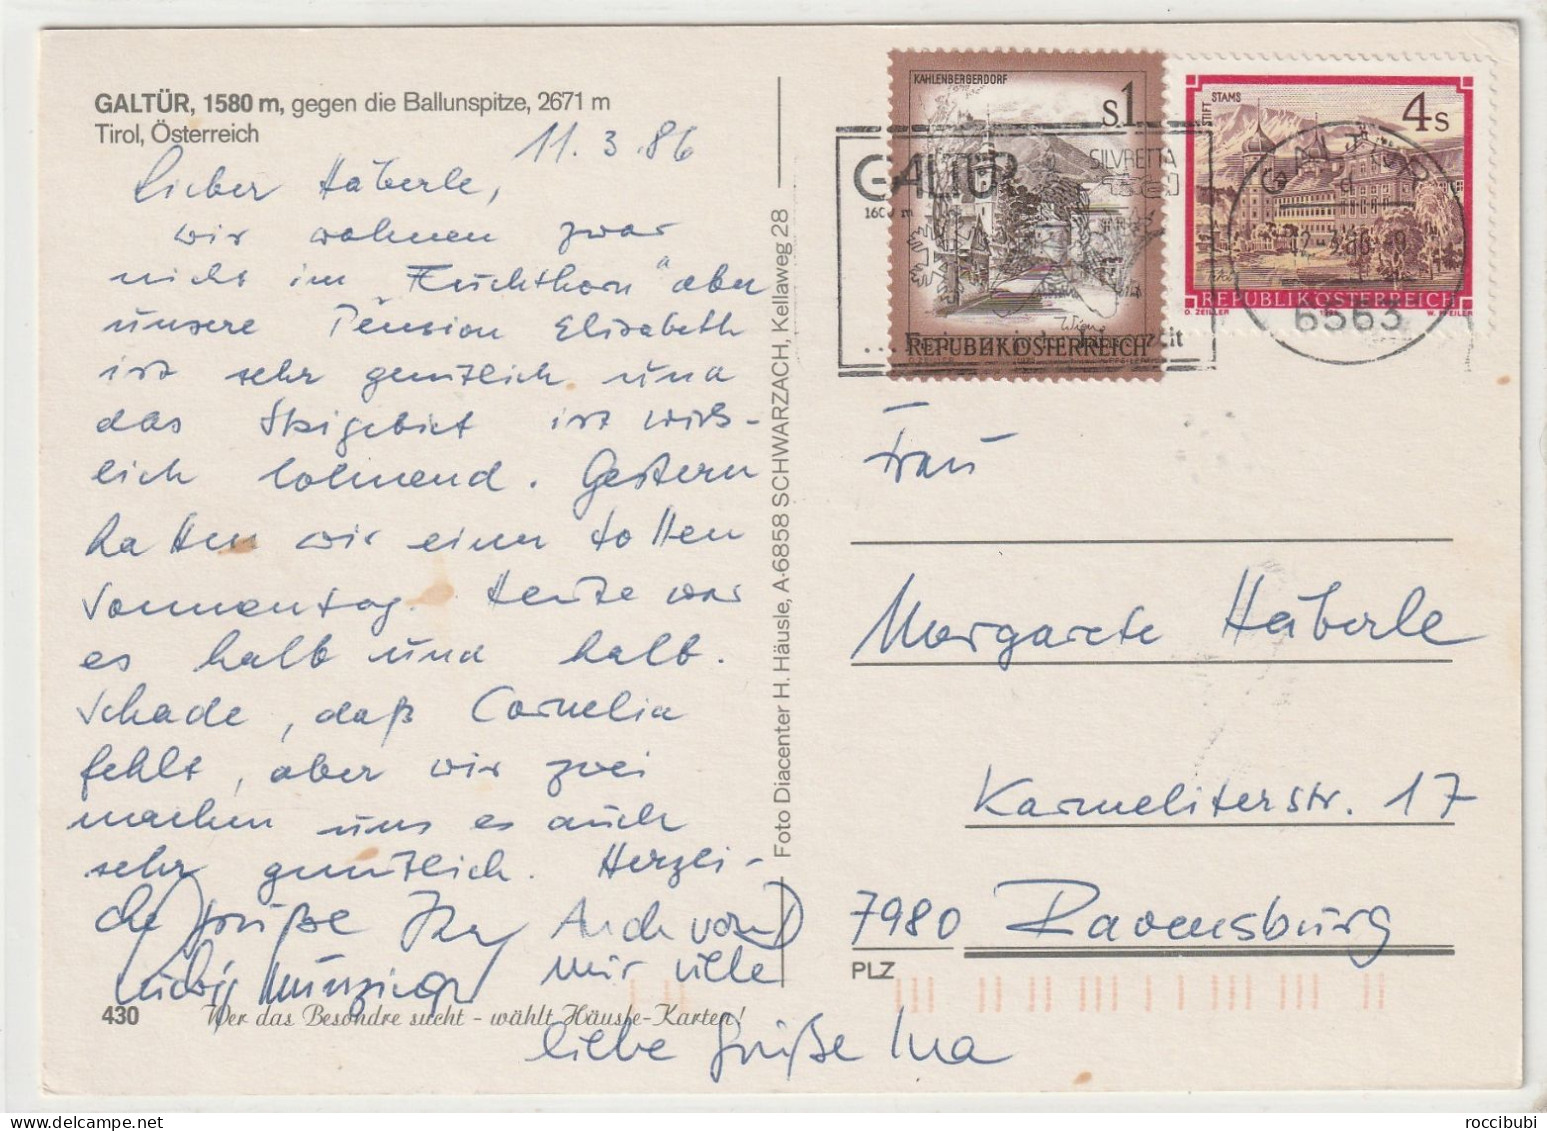 GALTÜR, 1580 m, gegen die Ballunspitze, 2671 m
Tirol, Österreich
11.3.86
Lieber Häberle,
wir wohnen zwar
nicht im „Fluchthorn" aber
unsere Pension Elisabeth
ist sehr gemütlich und
das Skigebiet ist wirk-
lich lohnend. Gestern
hatten wir einen tollen
Sonnentag. Heute war
es halb und halb.
Schade, daß Cornelia
fehlt, aber wir zwei
machen uns es auch
sehr gemütlich. Herzli-
che Grüße
Auch von
mir viele
liebe Grüße Ina
430
Wer das Besondre sucht - wählt Häusle-Karten!
Foto Diacenter H. Häusle, A-6858 SCHWARZACH, Kellaweg 28
KAHLENBERGERDORF
S1
REPUBLIK ÖSTERREICH
STIFT STAMS
4S
REPUBLIK ÖSTERREICH
O. ZEILLER
W. PFEILER
GALTÜR
SILVRETTA
GALTÜR
6563
Frau
Margarete Häberle
Karmeliterstr. 17
7980 Ravensburg
PLZ
roccibubi